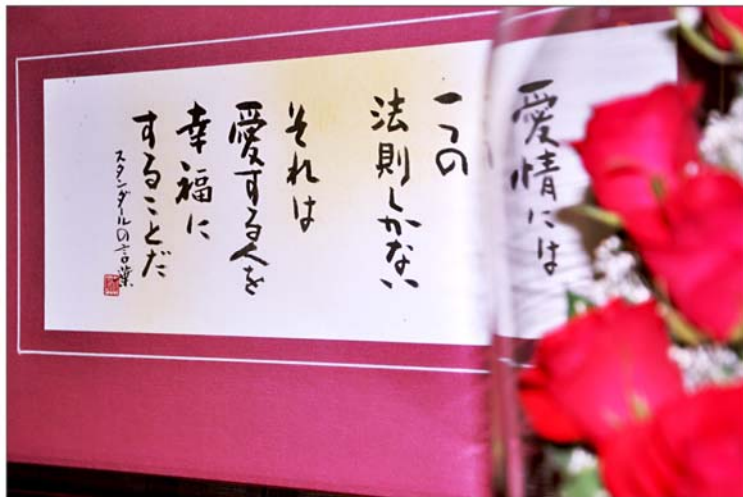 愛情には
一つの
法則しかない
それは
愛する人を
幸福に
することだ
スタンダールの言葉